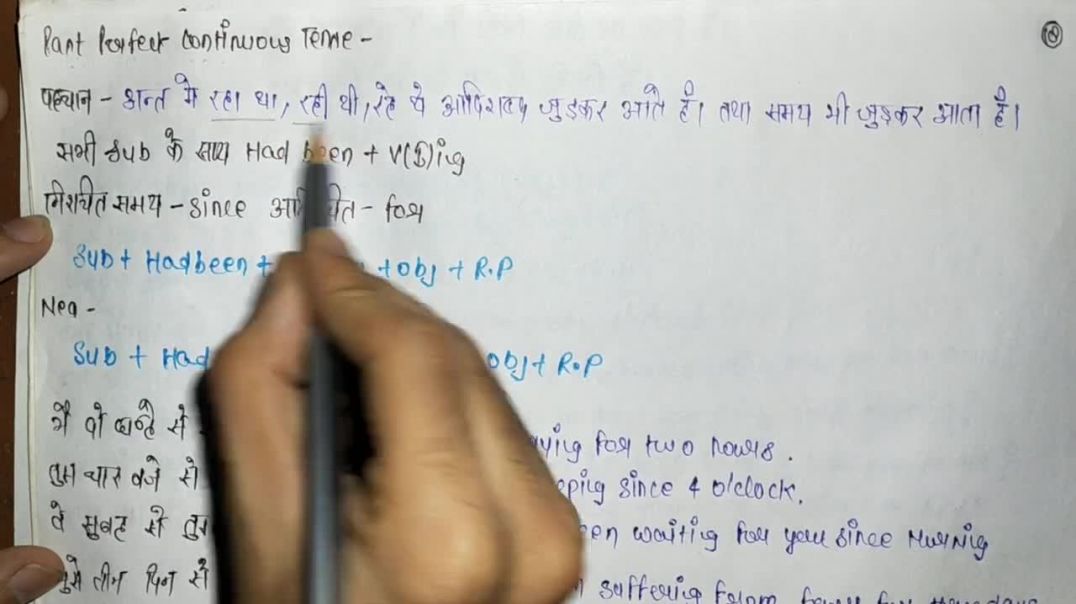 Past Perfect Continuous Tense -
18
पहचान - अन्त मे रहा था, रही थी, रहे थे आदि शब्द जुडकर आते हैं। तथा समय भी जुडकर आता है।
सभी Sub के साथ Had been + V(I)ing
निश्चित समय - Since अनिश्चित - for
Sub + Had been + + obj + R.P
Neg -
Sub + Had obj + R.P
मै दो घन्टे से for two hours.
तुम चार बजे से since 4 o'clock.
वे सुबह से waiting for you since Murnig
तीन दिन से suffering from